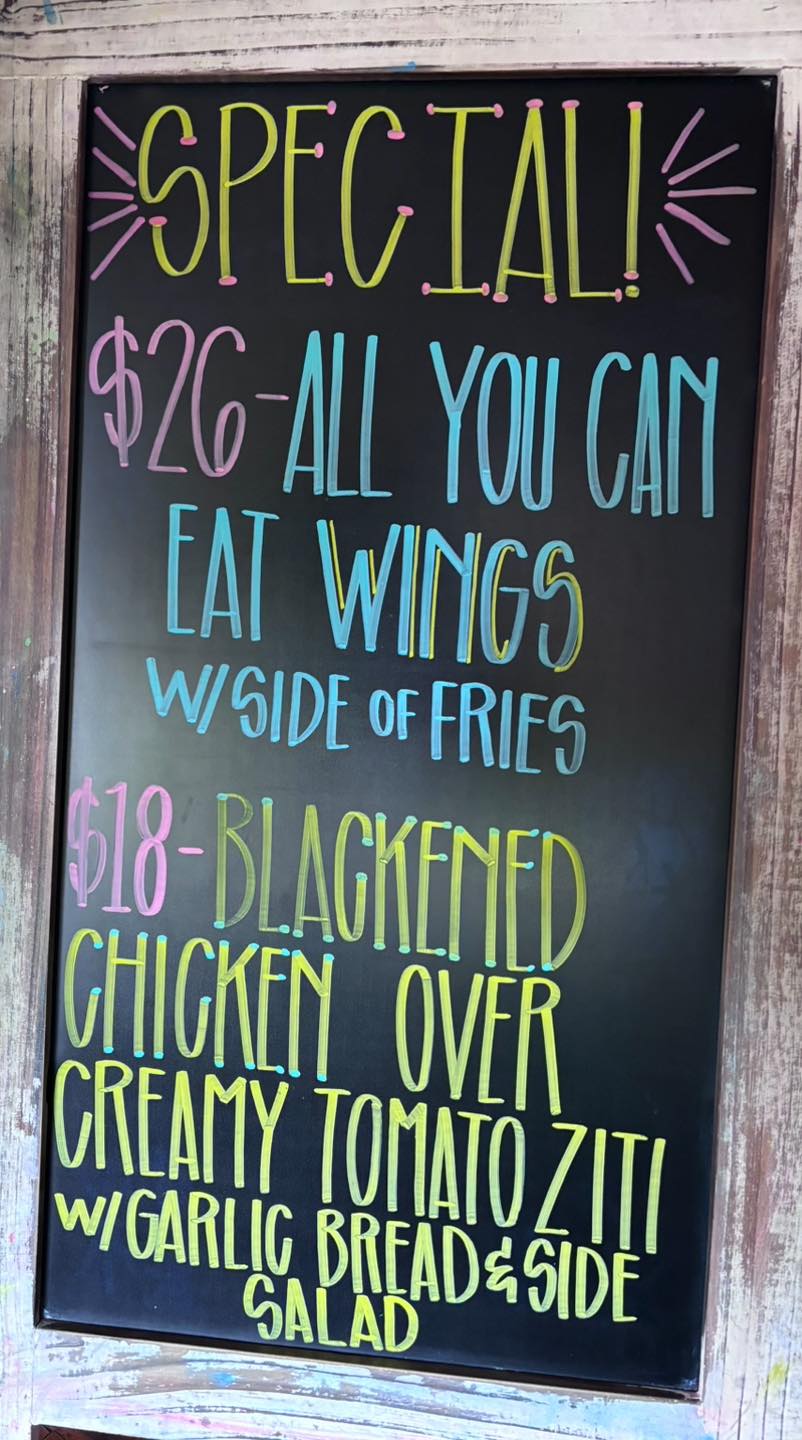 SPECIAL!
$26-ALL YOU CAN
EAT WINGS
W/SIDE OF FRIES
$18-BLACKENED
CHICKEN OVER
CREAMY TOMATO ZITI
W/GARLIC BREAD & SIDE
SALAD